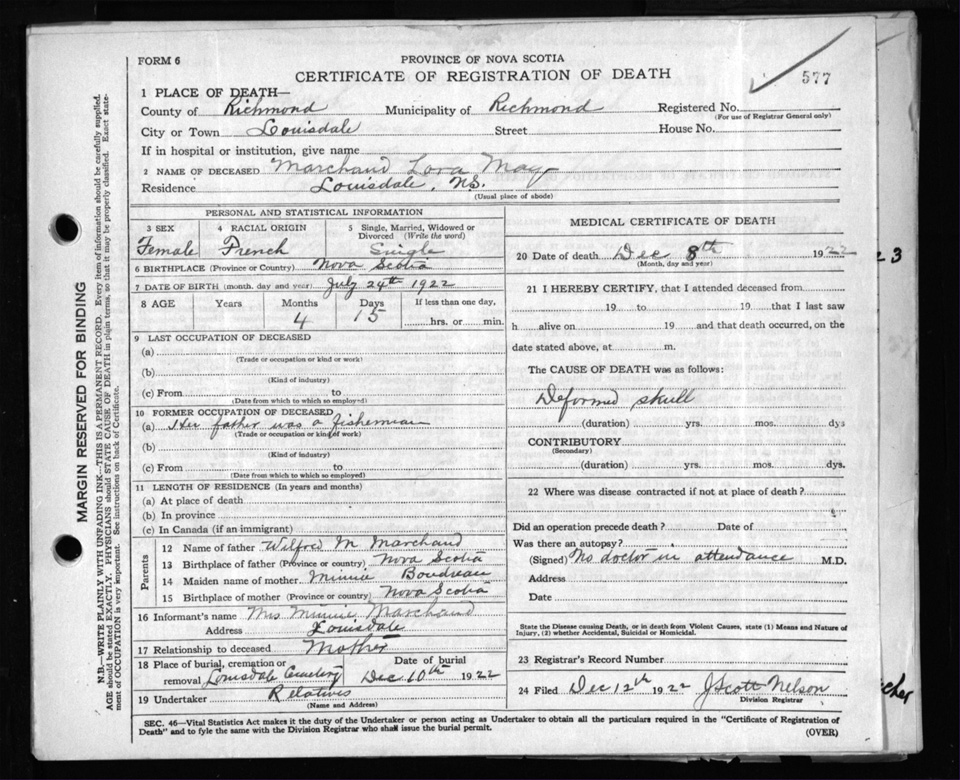 FORM 6
PROVINCE OF NOVA SCOTIA
CERTIFICATE OF REGISTRATION OF DEATH
577
1 PLACE OF DEATH—
County of Richmond Municipality of Richmond Registered No.
(For use of Registrar General only)
City or Town Louisdale Street House No.
If in hospital or institution, give name
2 NAME OF DECEASED Marchand Lora May
Residence Louisdale, N.S.
(Usual place of abode)
PERSONAL AND STATISTICAL INFORMATION
3 SEX 4 RACIAL ORIGIN 5 Single, Married, Widowed or Divorced (Write the word)
Female French Single
6 BIRTHPLACE (Province or Country) Nova Scotia
7 DATE OF BIRTH (month, day and year) July 24th 1922
8 AGE Years Months Days If less than one day,
4 15 hrs. or min.
9 LAST OCCUPATION OF DECEASED
(a)
(Trade or occupation or kind or work)
(b)
(Kind of industry)
(c) From to
(Date from which to which so employed)
10 FORMER OCCUPATION OF DECEASED
(a) Her father was a fisherman
(Trade or occupation or kind of work)
(b)
(Kind of industry)
(c) From to
(Date from which to which so employed)
11 LENGTH OF RESIDENCE (In years and months)
(a) At place of death
(b) In province
(c) In Canada (if an immigrant)
Parents
12 Name of father Wilfred M Marchand
13 Birthplace of father (Province or country) Nova Scotia
14 Maiden name of mother Minnie Boudreau
15 Birthplace of mother (Province or country) Nova Scotia
16 Informant's name Mrs Minnie Marchand
Address Louisdale
17 Relationship to deceased Mother
18 Place of burial, cremation or Date of burial
removal Louisdale Cemetery Dec 10th 1922
19 Undertaker Relatives
(Name and Address)
MEDICAL CERTIFICATE OF DEATH
20 Date of death Dec 8th 1922
(Month, day and year)
21 I HEREBY CERTIFY, that I attended deceased from
19 to 19 that I last saw
h alive on 19 and that death occurred, on the
date stated above, at m.
The CAUSE OF DEATH was as follows:
Deformed skull
(duration) yrs. mos. dys
CONTRIBUTORY
(Secondary)
(duration) yrs. mos. dys.
22 Where was disease contracted if not at place of death?
Did an operation precede death? Date of
Was there an autopsy?
(Signed) No doctor in attendance M.D.
Address
Date
State the Disease causing Death, or in death from Violent Causes, state (1) Means and Nature of
Injury, (2) whether Accidental, Suicidal or Homicidal.
23 Registrar's Record Number
24 Filed Dec 12th 1922 J Scott Nelson
Division Registrar
SEC. 46—Vital Statistics Act makes it the duty of the Undertaker or person acting as Undertaker to obtain all the particulars required in the "Certificate of Registration of
Death" and to fyle the same with the Division Registrar who shall issue the burial permit.
(OVER)
MARGIN RESERVED FOR BINDING
N.B.—WRITE PLAINLY WITH UNFADING INK—THIS IS A PERMANENT RECORD. Every item of information should be carefully supplied.
AGE should be stated EXACTLY. PHYSICIANS should STATE CAUSE OF DEATH in plain terms, so that it may be properly classified. Exact state-
ment of OCCUPATION is very important. See instructions on back of Certificate.
23
cher